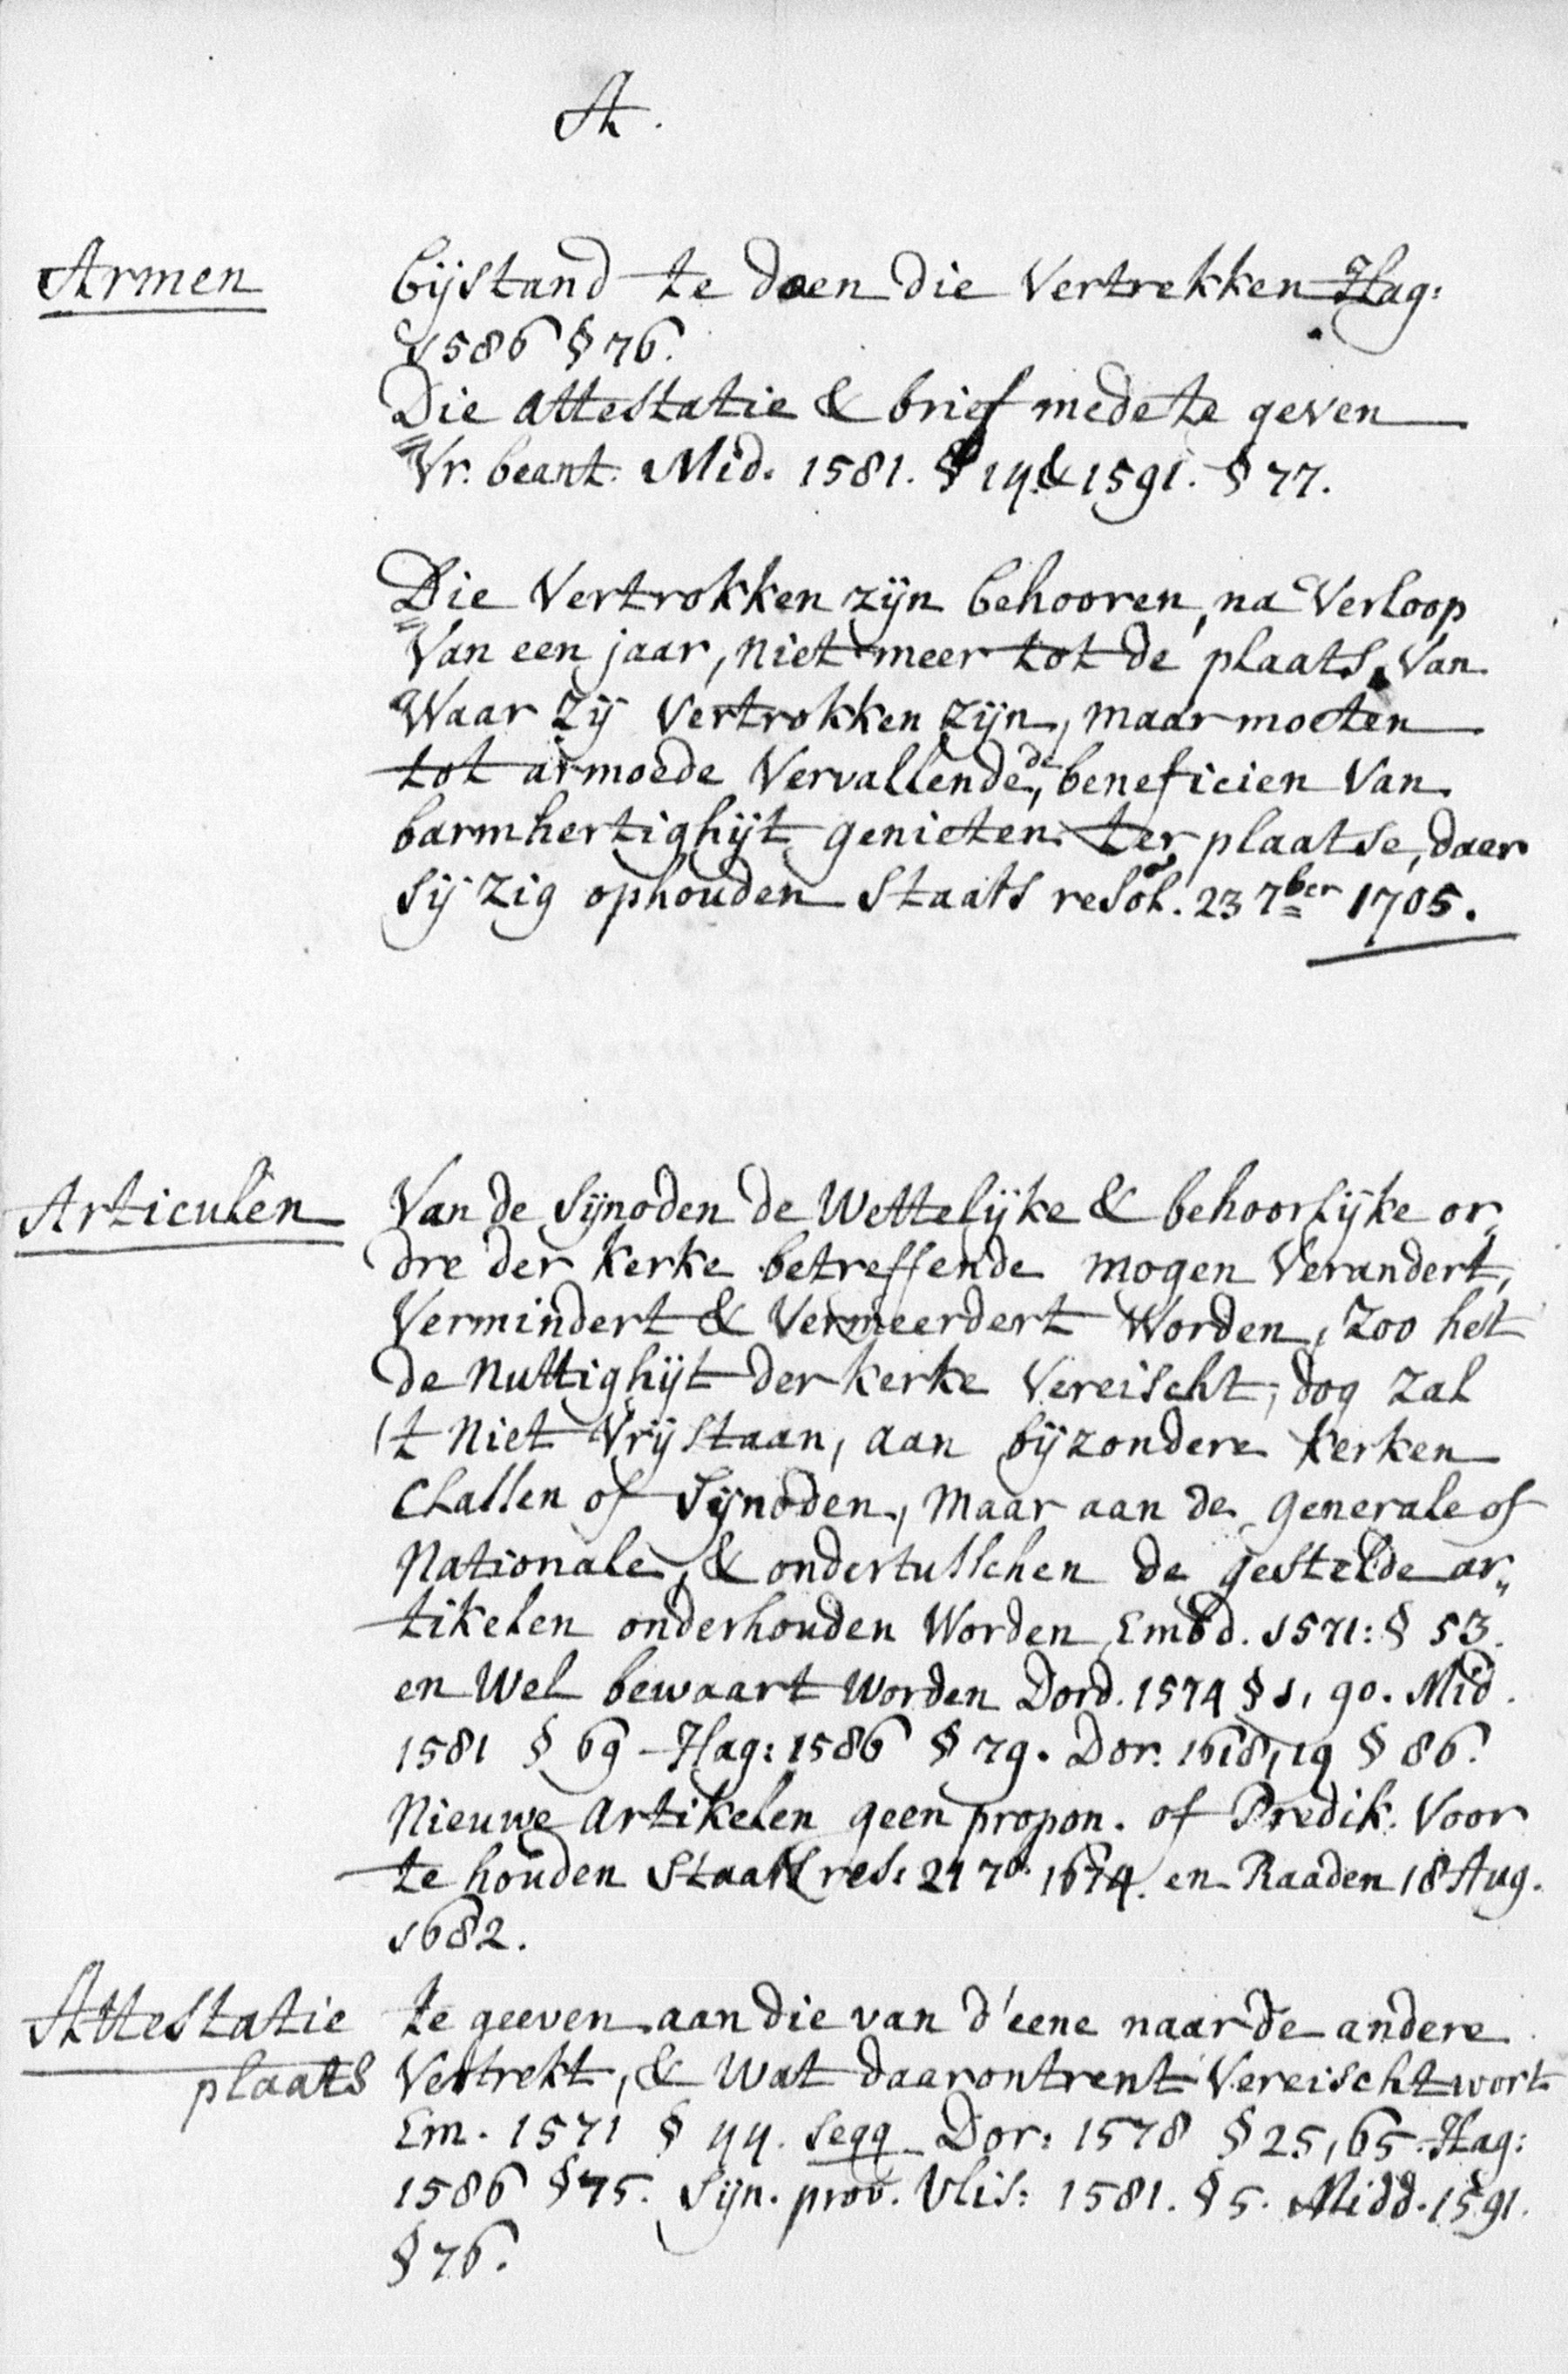 A.
Armen bijstand te doen die Vertrekken Hag:
1586 § 76.
Die attestatie & brief mede te geven
Vr. beant. Mid. 1581. § 14 & 1591. § 77.
Die Vertrokken zijn behooren, na Verloop
Van een jaar, niet meer tot de plaats, Van
Waar zij Vertrokken zijn, maar moeten
tot armoede Vervallende, de beneficien Van
barmhertighijt genieten ter plaatse, daer
sij zig ophouden Staats resol. 23 7ber 1705.
Articulen Van de Sijnoden de Wettelijke & behoorlijke or„
dre der Kerke betreffende mogen Verandert,
Vermindert & Vermeerdert Worden, Zoo het
de Nuttighijt der Kerke Vereischt, dog zal
't Niet Vrij staan, aan bijzondere Kerken
Classen of Sijnoden, Maar aan de generale of
Nationale, & ondertusschen de gestelde ar„
tikelen onderhouden Worden Embd. 1571: § 53.
en Wel bewaart Worden Dord. 1574 § 1, 90. Mid.
1581 § 69 Hag: 1586 § 79. Dor. 1618,19 § 86.
Nieuwe Artikelen geen propon. of Predik. Voor
te houden Staats res. 1674. en Raaden 18 Aug.
1682.
Attestatie te geeven aan die van d'eene naar de andere
plaats Vertrekt, & Wat daarontrent Vereischt wort
Em. 1571 § 44. seqq Dor: 1578 § 25, 65. Hag:
1586 § 75. Sijn. prov. Vlis: 1581. § 5. Midd. 1591.
§ 76.